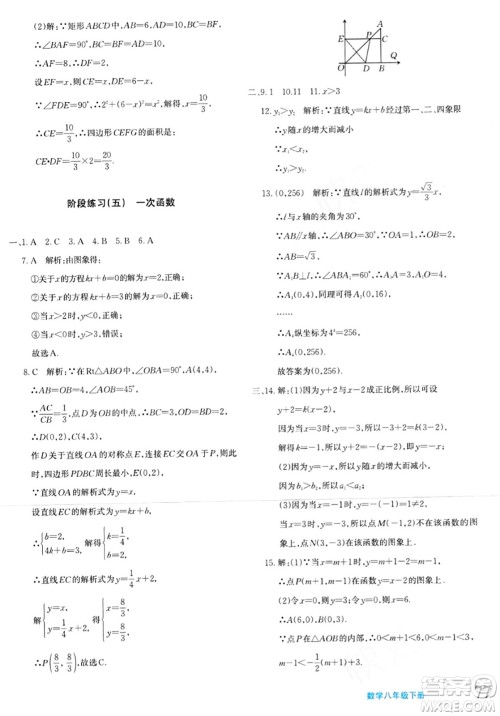 (2)解:∵矩形ABCD中,AB=6,
∴∠BAF=90°,BF=BC=10.
∴AF=8,∴DF=2.
设EF=x,则CE=x,DE=6-x.
∵∠FDE=90°,∴2²+(6-x)²=x²,解得:
x=10/3,∴CE=10/3,∴四边形CEFG的面积是:
CE·DF=10/3×2=20/3.
阶段练习(五) 一次函数
一、1.A 2.C 3.A 4.A 5.B 6.D
7.A 解析:由图象得:
①关于x的方程kx+b=0的解为x=2,正确;
②关于x的方程kx+b=3的解为x=0,正确;
③当x>2时,y<0,正确;
④当x<0时,y>3,错误;
故选A.
8.C 解析:∵在Rt△ABO中,∠OBA=90°,A(4,4),
∴AB=OB=4,∠AOB=45°,
∵AC/CB=1/3,点D为OB的中点,∴BC=3,OD=BD=2,
∴D(0,2),
作D关于直线OA的对称点E,连接EC交OA于P,则此时,四边形PDBC周长最小,E(0,2),
∵直线OA的解析式为y=x,
设直线EC的解析式为y=kx+b,
∴{b=2, 4k+b=3,解得:{k=1/4, b=2,
∴直线EC的解析式为y=1/4x+2,
解{y=x, y=1/4x+2,得{x=8/3, y=8/3,
∴P(8/3,8/3),故选C.
E P A C
O D B Q
二、9.1 10.11 11.x>3
12.y₁>y₂ 解析:∵直线y=kx+b经过第一、二、四象限
∴y随x的增大而减小
∵x₁<x₂
∴y₁>y₂
13.(0,256) 解析:∵直线l的解析式为y=√3/3x,
∴l与x轴的夹角为30°,
∵AB∥x轴,∴∠ABO=30°,
∵OA=1,∴AB=√3,
∵A₁B⊥l,∴∠ABA₁=60°,
∴A₁(0,4),同理可得A₂(0,16),…,
∴A₄纵坐标为4⁴=256,
∴A₄(0,256).
故答案为(0,256).
三、14.解:(1)∵y+2与x成正比例,所以可设
y+2=kx(k≠0),
∵当x=3时,y=7,∴7+2=3k,解得k=3,
∴y+2=3x,∴y与x的函数关系式为y=3x-2.
∵k=3>0,∴y随x的增大而增大,
因为b₁>b₂,所以a₁>a₂.
(2)∵当x=1时,y=1≠-3,所以点M(1,-3)不在该函数的图象上.
15.解:(1)∵当x=m+1时,y=m+1-2=m-1,
∴点P(m+1,m-1)在函数y=x-2的图象上.
(2)令x=0,则y=3,∴直线与y轴交点为(0,3),
令y=0,则x=6,∴直线与x轴交点为(6,0),
∵点P在△AOB的内部,
∴0<m+1<6,0<m-1<3,
m-1<-1/2(m+1)+3,∴1<m<7/3.
数学八年级下册